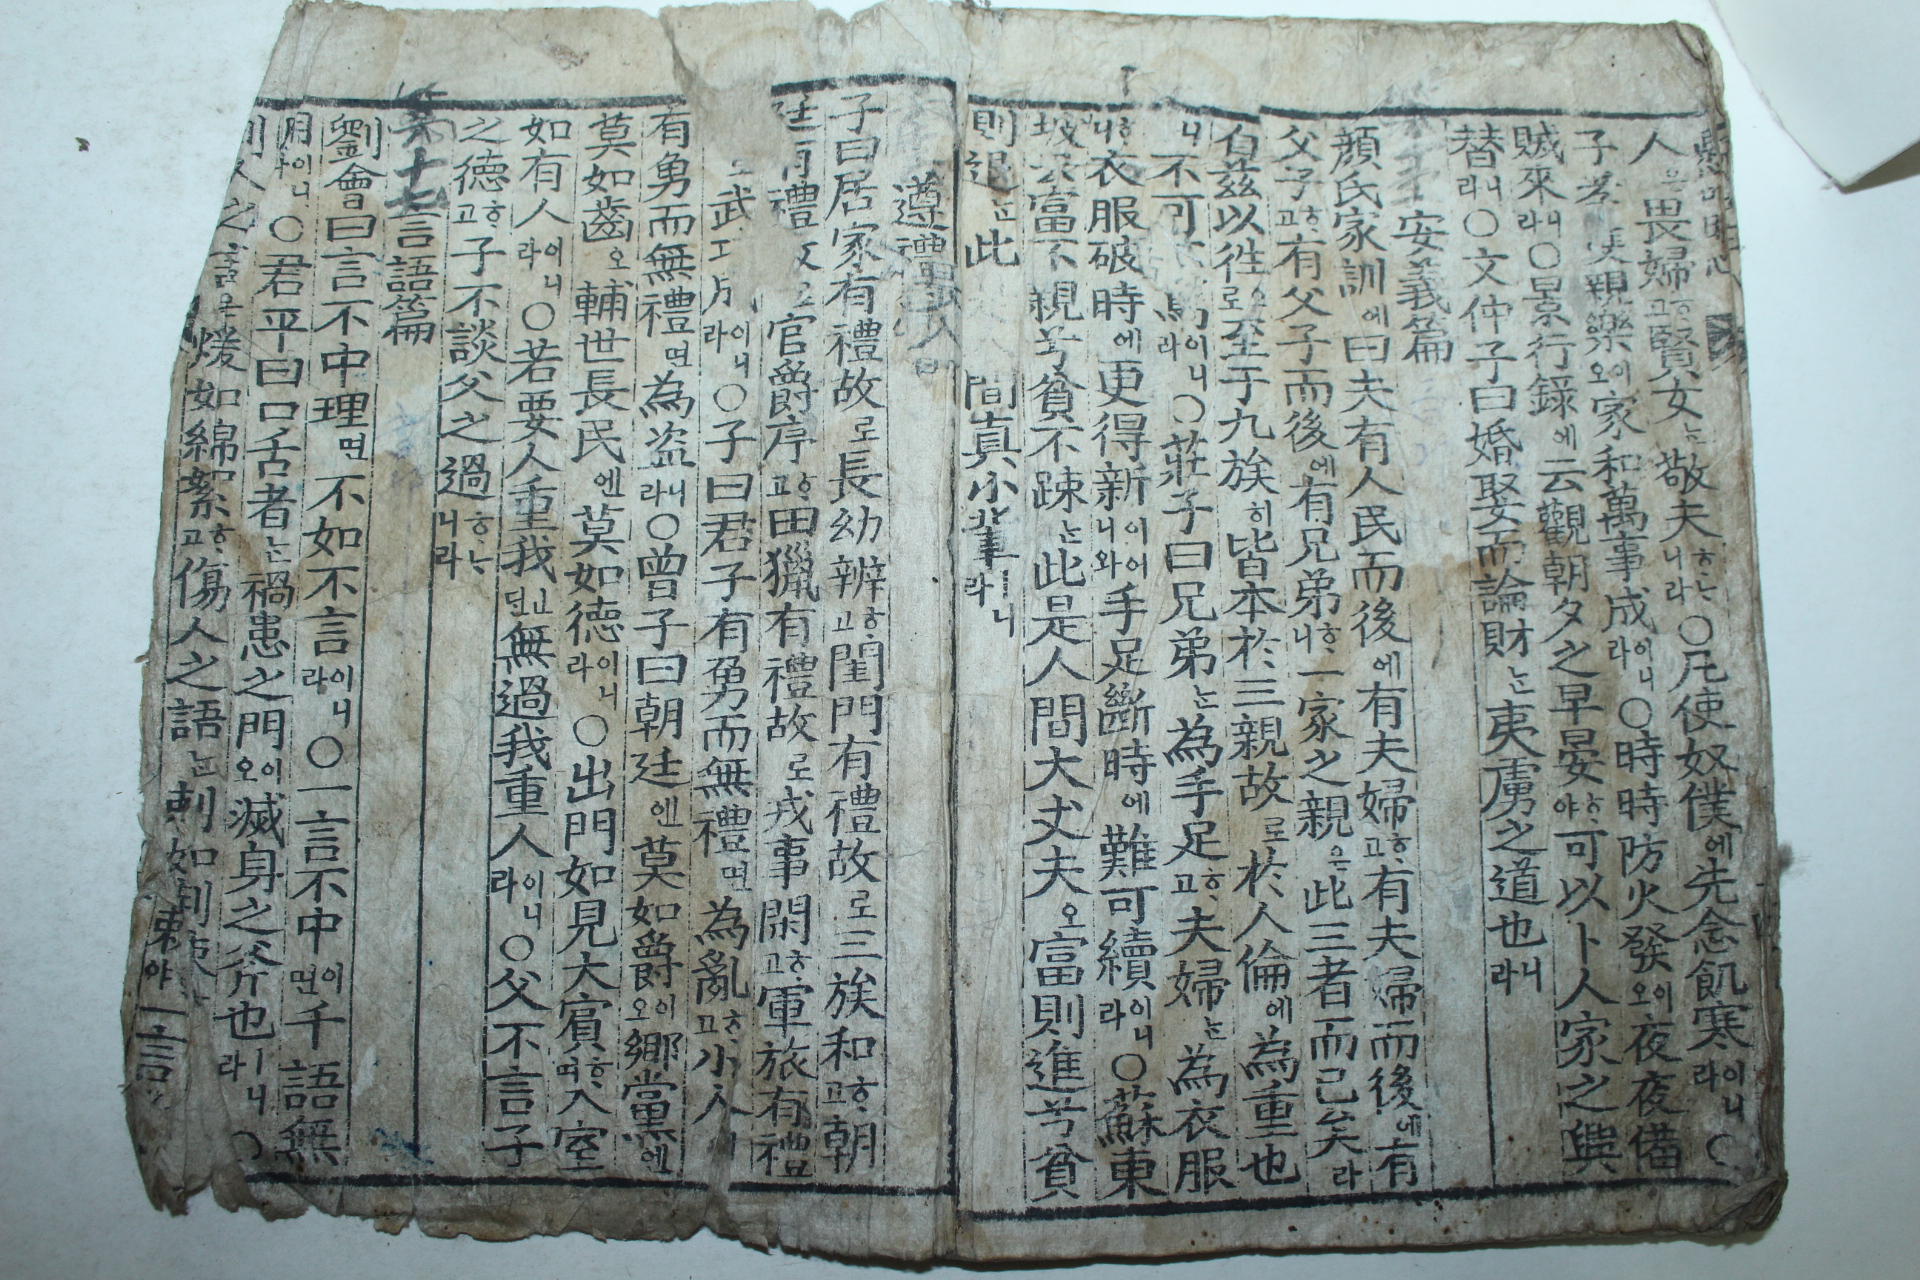 人은畏婦고賢女는敬夫니라○凡使奴僕에先念飢寒이니라○
子孝親樂이오家和萬事成이니라○時時防火發이오夜夜備
賊來니라○景行錄에云觀朝夕之早晏야可以卜人家之興
替니라○文仲子曰婚娶而論財는夷虜之道也니라
安義篇
顔氏家訓에曰夫有人民而後에有夫婦고有夫婦而後에有
父子고有父子而後에有兄弟니一家之親은此三者而已矣라
自茲以徃로至于九族히皆本於三親故로於人倫에為重也
니不可不篤이니라○莊子曰兄弟는為手足고夫婦는為衣服
니衣服破時에更得新이어니와手足斷時에難可續이니라○蘇東
坡云富不親兮貧不踈는此是人間大丈夫오富則進兮貧
則退는此人間真小輩니라
遵禮篇
子曰居家有禮故로長幼辨고閨門有禮故로三族和고朝
廷有禮故로官爵序고田獵有禮故로戎事閑고軍旅有禮
故로武功成이니라○子曰君子有勇而無禮면為亂고小人이
有勇而無禮면為盜니라○曾子曰朝廷엔莫如爵이오鄉黨엔
莫如齒오輔世長民엔莫如德이니라○出門如見大賓며入室
如有人이니라○若要人重我인댄無過我重人이니라○父不言子
之德고子不談父之過니라
第十七言語篇
劉會曰言不中理면不如不言이니라○一言不中이면千語無
用이니라○君平曰口舌者는禍患之門이오滅身之斧也ㅣ니라○
利人之言은煖如綿絮고傷人之語는刺如荊棘야一言